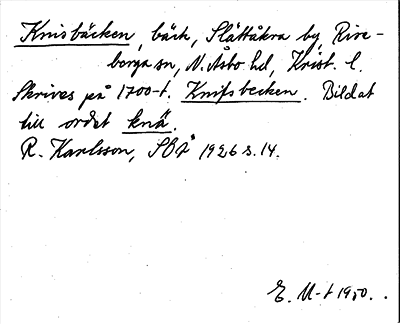 Knisbäcken, bäck, Slättåkra by, Rive-
berga sn, N. Åsbo hd, Krist. l.
Skrives på 1700-t. Knifsbecken. Bildat
till ordet knä.
R. Karlsson, SOÅ 1926 s. 14.
E. M-t 1950.